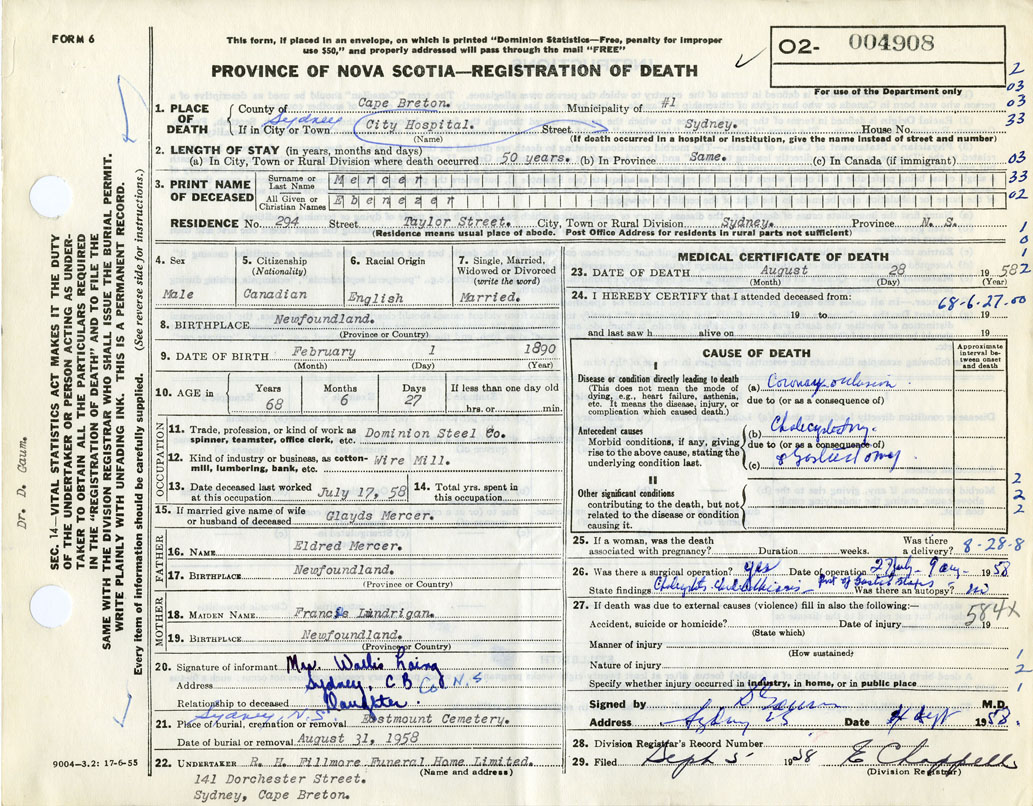 FORM 6
This form, if placed in an envelope, on which is printed "Dominion Statistics—Free, penalty for improper
use $50," and properly addressed will pass through the mail "FREE"
PROVINCE OF NOVA SCOTIA—REGISTRATION OF DEATH
02- 004908
For use of the Department only
1. PLACE OF DEATH
County of Cape Breton. Municipality of #1
If in City or Town Sydney City Hospital. Street Sydney. House No.
(Name) (If death occurred in a hospital or institution, give the name instead of street and number)
2. LENGTH OF STAY (in years, months and days)
(a) In City, Town or Rural Division where death occurred 50 years. (b) In Province Same. (c) In Canada (if immigrant)
3. PRINT NAME OF DECEASED
Surname or Last Name Mercer
All Given or Christian Names Ebenezer
RESIDENCE No. 294 Street Taylor Street. City, Town or Rural Division Sydney. Province N. S.
(Residence means usual place of abode. Post Office Address for residents in rural parts not sufficient)
4. Sex Male
5. Citizenship (Nationality) Canadian
6. Racial Origin English
7. Single, Married, Widowed or Divorced (write the word) Married.
8. BIRTHPLACE Newfoundland.
(Province or Country)
9. DATE OF BIRTH February 1 1890
(Month) (Day) (Year)
10. AGE in Years 68 Months 6 Days 27 If less than one day old hrs. or min.
OCCUPATION
11. Trade, profession, or kind of work as spinner, teamster, office clerk, etc. Dominion Steel Co.
12. Kind of industry or business, as cotton-mill, lumbering, bank, etc. Wire Mill.
13. Date deceased last worked at this occupation. July 17, 58
14. Total yrs. spent in this occupation.
15. If married give name of wife or husband of deceased Glayds Mercer.
FATHER
16. NAME Eldred Mercer.
17. BIRTHPLACE Newfoundland.
(Province or Country)
MOTHER
18. MAIDEN NAME Lundrigan.
19. BIRTHPLACE Newfoundland.
(Province or Country)
20. Signature of informant Mrs. Wallis Laing
Address Sydney, C B Co N.S
Relationship to deceased Daughter.
Sydney, N.S
21. Place of burial, cremation or removal Eastmount Cemetery.
Date of burial or removal August 31, 1958
22. UNDERTAKER R. H. Fillmore Funeral Home Limited.
(Name and address)
141 Dorchester Street.
Sydney, Cape Breton.
MEDICAL CERTIFICATE OF DEATH
23. DATE OF DEATH August 28 1958
(Month) (Day) (Year)
24. I HEREBY CERTIFY that I attended deceased from: 68-6-27-00
19 to 19
and last saw h alive on 19
CAUSE OF DEATH
Approximate interval between onset and death
I
Disease or condition directly leading to death
(This does not mean the mode of dying, e.g., heart failure, asthenia, etc. It means the disease, injury, or complication which caused death.)
(a) Coronary occlusion
due to (or as a consequence of)
Antecedent causes
Morbid conditions, if any, giving rise to the above cause, stating the underlying condition last.
(b) Cholecystectomy
due to (or as a consequence of)
(c)
II
Other significant conditions
contributing to the death, but not related to the disease or condition causing it.
25. If a woman, was the death associated with pregnancy? Duration weeks. Was there a delivery? 8-28-8
26. Was there a surgical operation? yes Date of operation 27 July - 9 aug - 1958
State findings Was there an autopsy? no
27. If death was due to external causes (violence) fill in also the following:— 584X
Accident, suicide or homicide? Date of injury 19
(State which)
Manner of injury
(How sustained)
Nature of injury
Specify whether injury occurred in industry, in home, or in public place
Signed by M.D.
Address Sydney NS Date 4 Sept 1958.
28. Division Registrar's Record Number
29. Filed Sept 5 1958 E Chappell
(Division Registrar)
Dr. D. Gaum.
SEC. 14—VITAL STATISTICS ACT MAKES IT THE DUTY
OF THE UNDERTAKER OR PERSON ACTING AS UNDER-
TAKER TO OBTAIN ALL THE PARTICULARS REQUIRED
IN THE "REGISTRATION OF DEATH" AND TO FILE THE
SAME WITH THE DIVISION REGISTRAR WHO SHALL ISSUE THE BURIAL PERMIT.
WRITE PLAINLY WITH UNFADING INK. THIS IS A PERMANENT RECORD.
Every item of information should be carefully supplied. (See reverse side for instructions.)
9004-3.2: 17-6-55
2
03
03
33
03
33
02
1
0
1
2
2
2
2
1
2